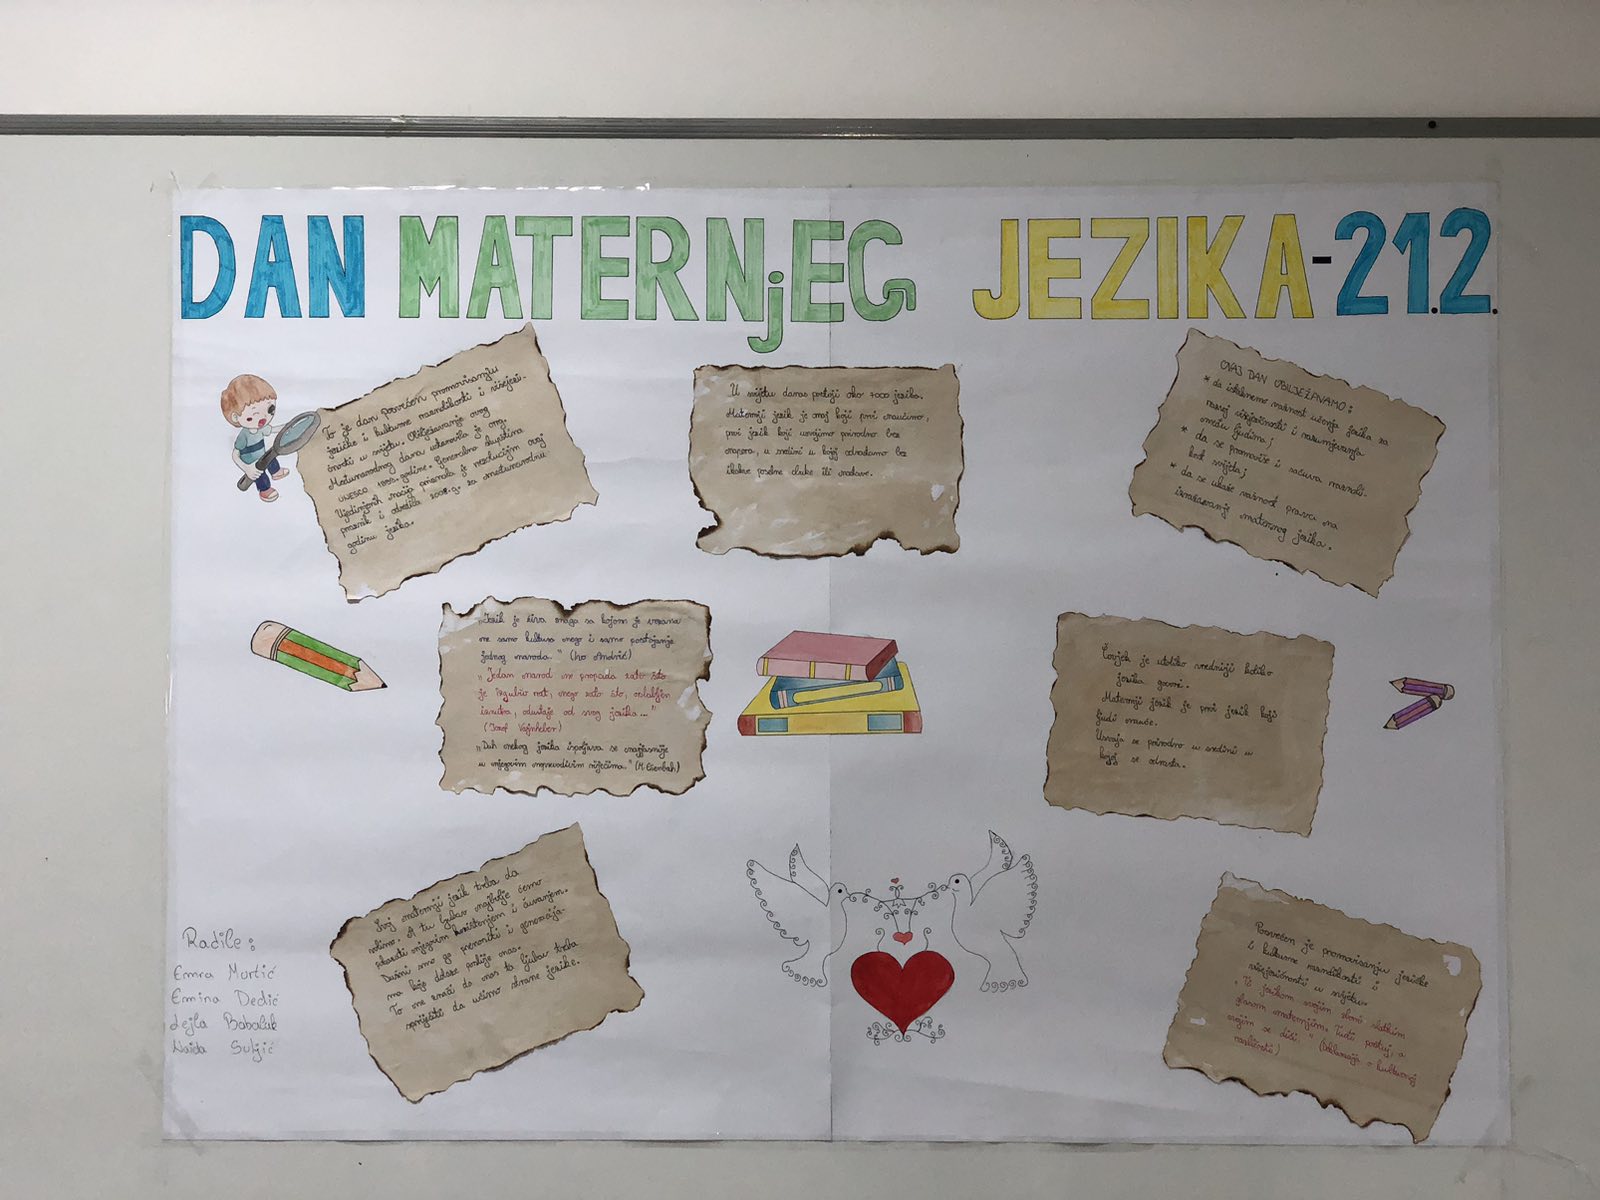 DAN MATERNjEG JEZIKA-21.2.
To je dan posvećen promovisanju
jezičke i kulturne raznolikosti i višejezi-
čnosti u svijetu. Obilježavanje ovog
Međunarodnog dana ustanovila je ovaj
UNESCO 1999. godine. Generalna skupština
Ujedinjenih nacija priznala je rezolucijom ovaj
praznik i odredila 2008.g. za međunarodnu
godinu jezika.
U svijetu danas postoji oko 7000 jezika.
Maternji jezik je onaj koji prvi naučimo,
prvi jezik koji usvojimo prirodno bez
napora, u sredini u kojoj odrastamo bez
ikakve posebne obuke ili nastave.
OVAJ DAN OBILJEŽAVAMO:
* da istaknemo važnost učenja jezika za
razvoj višejezičnosti i razumijevanja
među ljudima;
* da se promoviše i sačuva raznoli-
kost svijeta;
* da se ukaže važnost prava na
izražavanje maternog jezika.
„Jezik je živa snaga sa kojom je vezana
ne samo kultura nego i samo postojanje
jednog naroda." (Ivo Andrić)
„Jedan narod ne propada zato što
je izgubio rat, nego zato što, oslabljen
iznutra, odustaje od svog jezika..."
(Jozef Vajnheber)
„Duh nekog jezika ispoljava se najjasnije
u njegovim neprevodivim riječima." (M. Ebenbah)
Čovjek je utoliko vredniji koliko
jezika govori.
Maternji jezik je prvi jezik koji
ljudi nauče.
Usvaja se prirodno u sredini u
kojoj se odrasta.
Svoj maternji jezik treba da
volimo. A tu ljubav najbolje ćemo
pokazati njegovim korištenjem i čuvanjem.
Dužni smo ga prenositi i generacija-
ma koje dolaze poslije nas.
To ne znači da nas ta ljubav treba
spriječiti da učimo strane jezike.
Posvećen je promovisanju jezičke
i kulturne raznolikosti i
višejezičnosti u svijetu.
jezikom svojim zboriš slatkim
glasom maternjim. Tuđi poštuj, a
svojim se diči." (Deklaracija o kulturnoj
različitosti)
Radile:
Emra Murtić
Emina Dedić
Lejla Babaluk
Naida Suljić